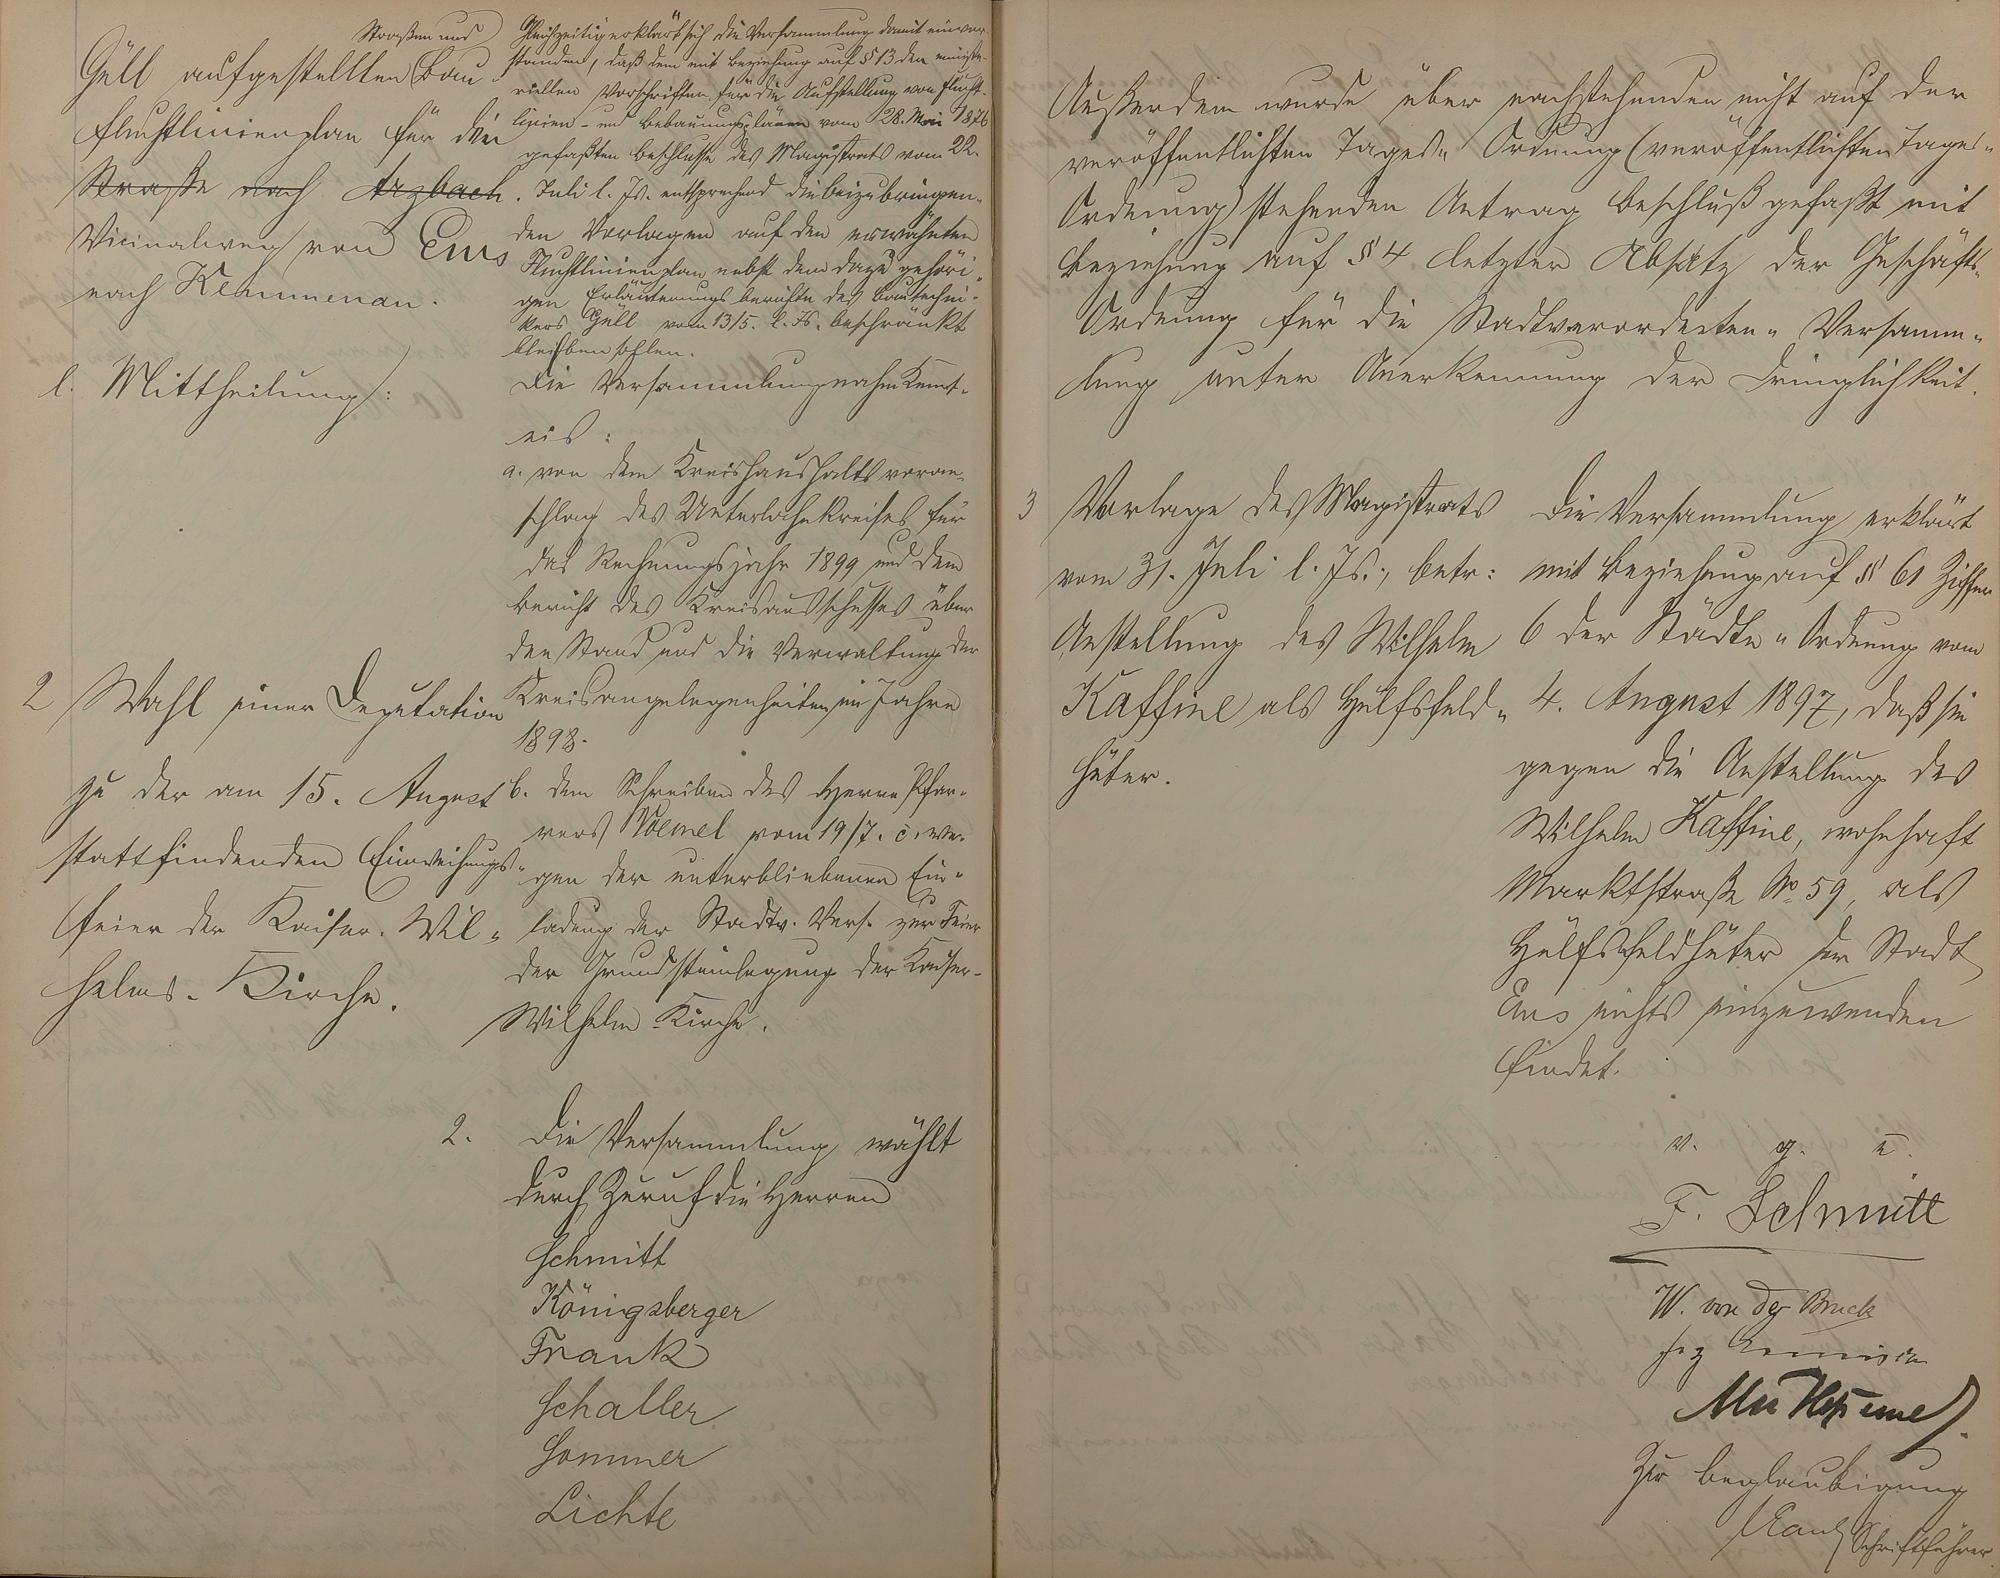 Straßen und
Güll aufgestellten Bau
fluchtlinienplan für den
Straße nach Arzbach.
Vicinalweg von Ems
nach Kemmenau.
l. Mittheilung:
2 Wahl einer Deputation
zu der am 15. August
stattfindenden Einweihungs-
feier der Kaiser-Wil-
helms-Kirche.
Gleichzeitig erklärt sich die Versammlung damit einver-
standen, daß dem mit Beziehung auf § 13 der ministe-
riellen Vorschriften für die Aufstellung von Flucht-
linien- und Bebauungsplänen vom 28. Mai 1876
gefaßten Beschlusse des Magistrats vom 22.
Juli l. Js. entsprechend die beizubringen-
den Vorlagen auf den erwähnten
Fluchtlinienplan nebst dem dazu gehöri-
gen Erläuterungsberichte des Bautechni-
kers Güll vom 13/5. l. Js. beschränkt
bleiben sollen.
Die Versammlung nahm Kennt-
nis:
a. von dem Kreishaushaltsvoran-
schlag des Unterlahnkreises für
das Rechnungsjahr 1899 und dem
Bericht des Kreisausschusses über
den Stand und die Verwaltung der
Kreisangelegenheiten im Jahre
1898.
b. dem Schreiben des Herrn Pfar-
rers Vömel vom 19/7. c. we-
gen der unterbliebenen Ein-
ladung der Stadtv. Vers. zur Feier
der Grundsteinlegung der Kaiser-
Wilhelm-Kirche.
2. Die Versammlung wählt
durch Zuruf die Herren
Schmitt
Königsberger
Frank
Schaller
Sommer
Lichte
Außerdem wurde über nachstehenden nicht auf der
veröffentlichten Tages-Ordnung (veröffentlichten Tages-
Ordnung) stehenden Antrag Beschluß gefaßt mit
Beziehung auf § 4 letzter Absatz der Geschäfts-
Ordnung für die Stadtverordneten-Versamm-
lung unter Anerkennung der Dringlichkeit.
3 Vorlage des Magistrats
vom 31. Juli l. Js., betr:
Anstellung des Wilhelm
Kaffine als Hülfsfeld-
hüter.
Die Versammlung erklärt
mit Beziehung auf § 61 Ziffer
6 der Städte-Ordnung vom
4. August 1897, daß sie
gegen die Anstellung des
Wilhelm Kaffine, wohnhaft
Marktstraße No 59, als
Hülfsfeldhüter der Stadt
Ems nichts einzuwenden
findet.
v. g. u.
F. Schmitt
W. von der Bruck
Zur Beglaubigung
Schriftführer